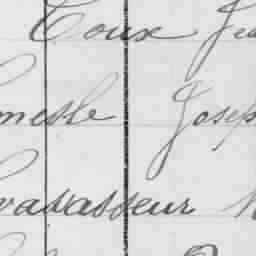 Toux Je
mesle Josep
vavasseur